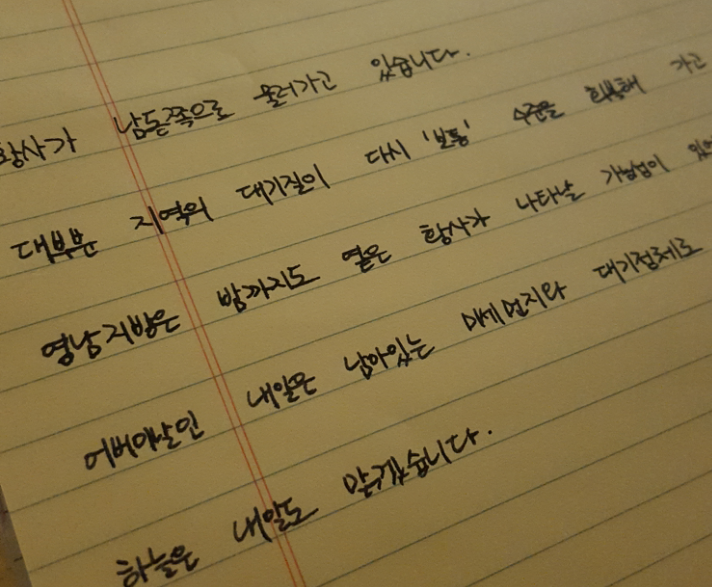 황사가 남동쪽으로 물러가고 있습니다.
대부분 지역의 대기질이 다시 '보통' 수준을 회복해 가고
영남지방은 밤까지도 옅은 황사가 나타날 가능성이
어버이날인 내일은 남아있는 미세먼지와 대기정체로
하늘은 내일도 맑겠습니다.